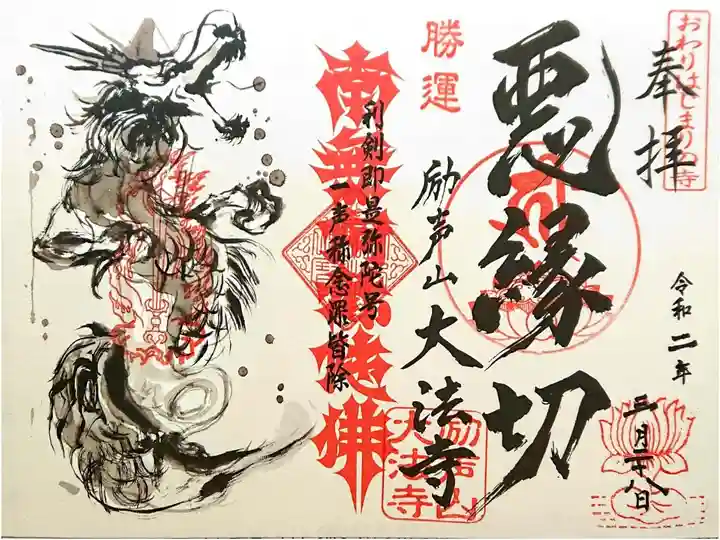 おわりはじまりの寺
奉拝
令和二年
三月二十八日
悪縁切
勝運
励声山大法寺
励声山
大法寺
南無阿弥陀佛
利剣即是弥陀号
一声称念罪皆除